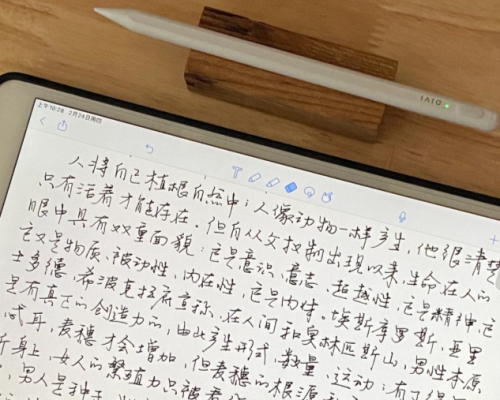 上午10:28 2月24日周四
SAIQ
人将自己植根自然中；人像动物一样产生，他很清楚
只有活着才能存在。但自从父权制出现以来，生命在人的
眼中具有双重面貌：它是意识、意志、超越性，它是精神；它
又是物质、被动性、内在性，它是肉体。埃斯库罗斯、亚里
士多德、希波克拉底宣称，在人间和奥林匹斯山，男性本原
是有真正的创造力的，由此产生形式、数量、运动；有了得
耳，麦穗才会增加，但麦穗的根源
身上，女人的繁殖力只被看
男人是种子